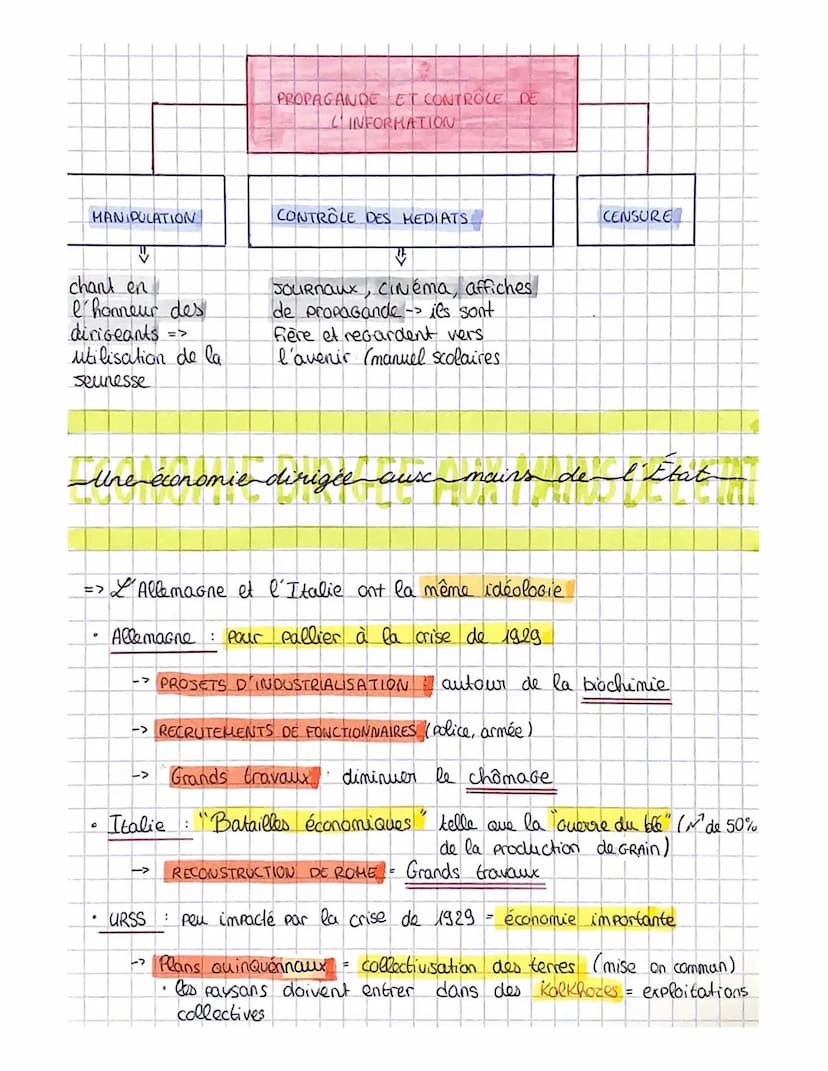 PROPAGANDE ET CONTRÔLE DE
L'INFORMATION
MANIPULATION
CONTRÔLE DES MEDIATS
CENSURE
chant en
l'honneur des
dirigeants =>
utilisation de la
jeunesse
JOURNAUX, CINÉMA, affiches
de propagande -> ils sont
fière et regardent vers
l'avenir (manuel scolaires
ECONOMIE DIRIGEE AUX MAINS DE L'ETAT
Une économie dirigée aux mains de l'État
=> L'Allemagne et l'Italie ont la même idéologie
• Allemagne : pour pallier à la crise de 1929
-> PROJETS D'INDUSTRIALISATION : autour de la biochimie
-> RECRUTEMENTS DE FONCTIONNAIRES (police, armée)
-> Grands travaux : diminuer le chômage
• Italie : "Batailles économiques" telle que la "guerre du blé" (↗ de 50%
de la production de GRAIN)
-> RECONSTRUCTION DE ROME = Grands travaux
• URSS : peu impacté par la crise de 1929 = économie importante
-> Plans quinquénnaux = collectivisation des terres (mise en commun)
• les paysans doivent entrer dans des Kolkhozes = exploitations
collectives